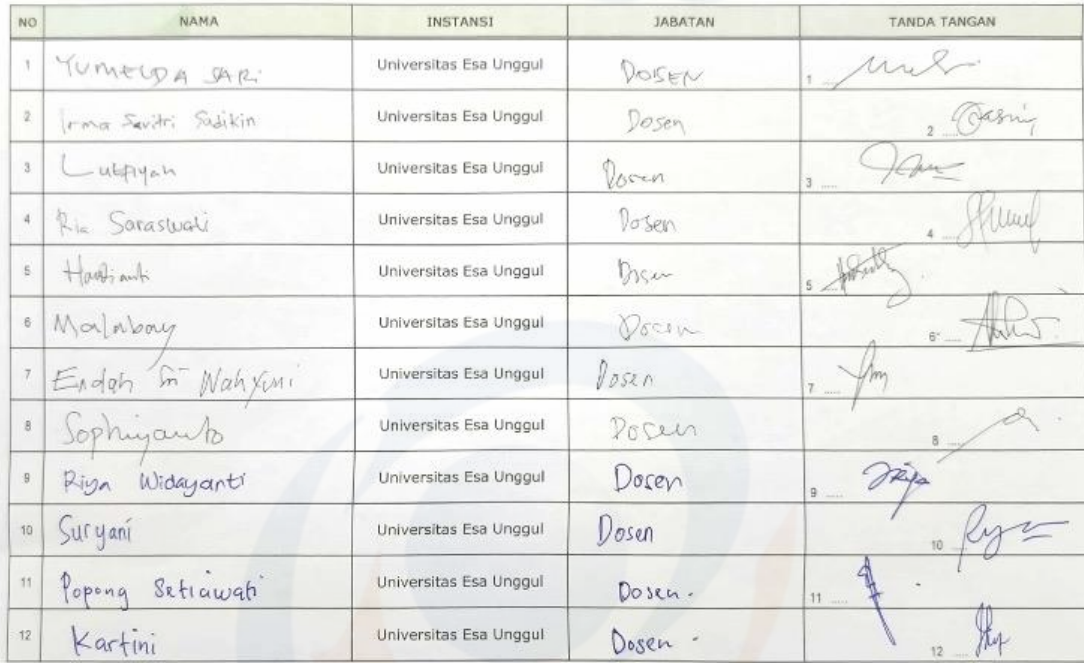 NO NAMA INSTANSI JABATAN TANDA TANGAN
1 YUMELDA SARI Universitas Esa Unggul DOSEN 1 .....
2 Irma Savitri Sadikin Universitas Esa Unggul Dosen 2 .....
3 Lutfiyah Universitas Esa Unggul Dosen 3 .....
4 Ria Saraswati Universitas Esa Unggul Dosen 4 .....
5 Universitas Esa Unggul Dosen 5 .....
6 Malabay Universitas Esa Unggul Dosen 6 .....
7 Endah Universitas Esa Unggul Dosen 7 .....
8 Sophiyanto Universitas Esa Unggul Dosen 8 .....
9 Riya Widayanti Universitas Esa Unggul Dosen 9 .....
10 Suryani Universitas Esa Unggul Dosen 10 .....
11 Popong Setiawati Universitas Esa Unggul Dosen. 11 .....
12 Kartini Universitas Esa Unggul Dosen - 12 .....